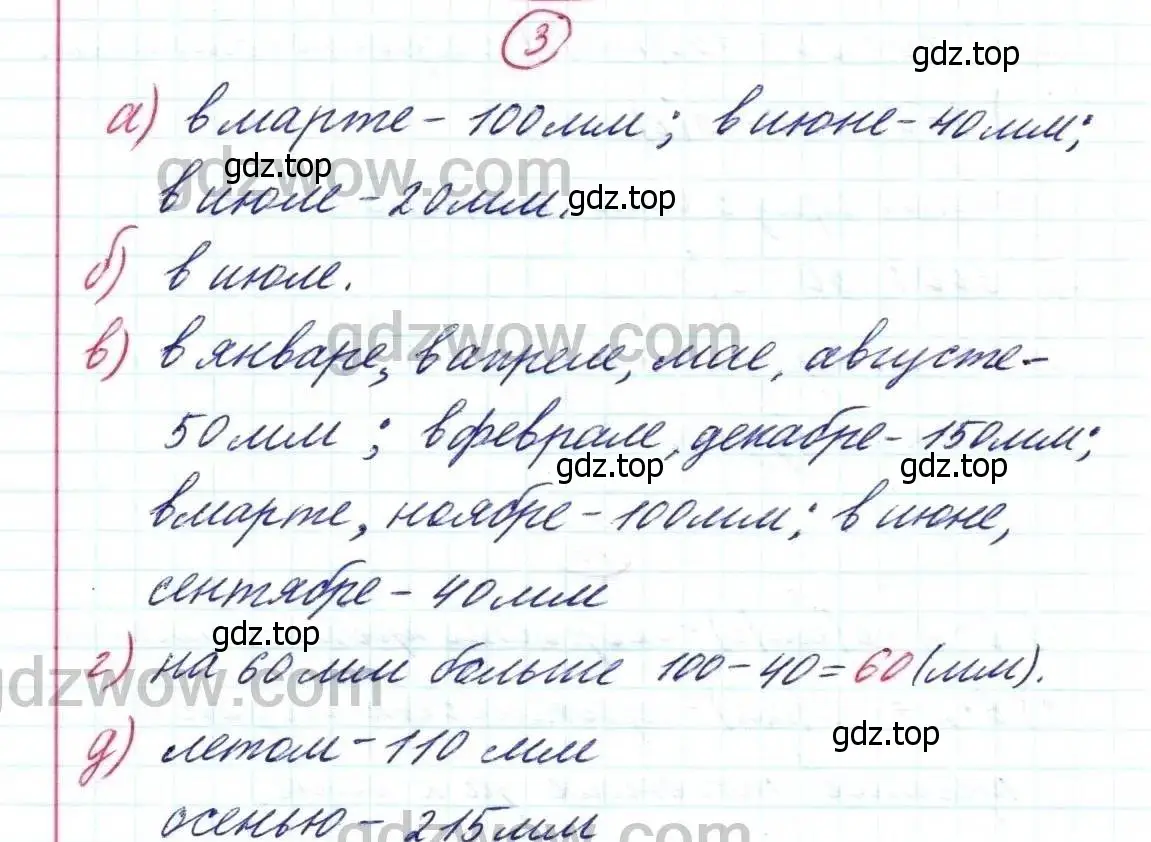 3
gdz.top
а) в марте - 100 мм; в июне - 40 мм;
gdzwow.com
gdz.top
в июле - 20 мм.
gdz.top
б) в июле.
gdzwow.com
в) в январе, в апреле, мае, августе -
50 мм; в феврале, декабре - 150 мм;
gdz.top
gdz.top
в марте, ноябре - 100 мм; в июне,
сентябре - 40 мм
gdz.top
г) на 60 мм больше 100 - 40 = 60 (мм).
gdzwow.com
gdz.top
д) летом - 110 мм
осенью - 215 мм
gdzwow.com